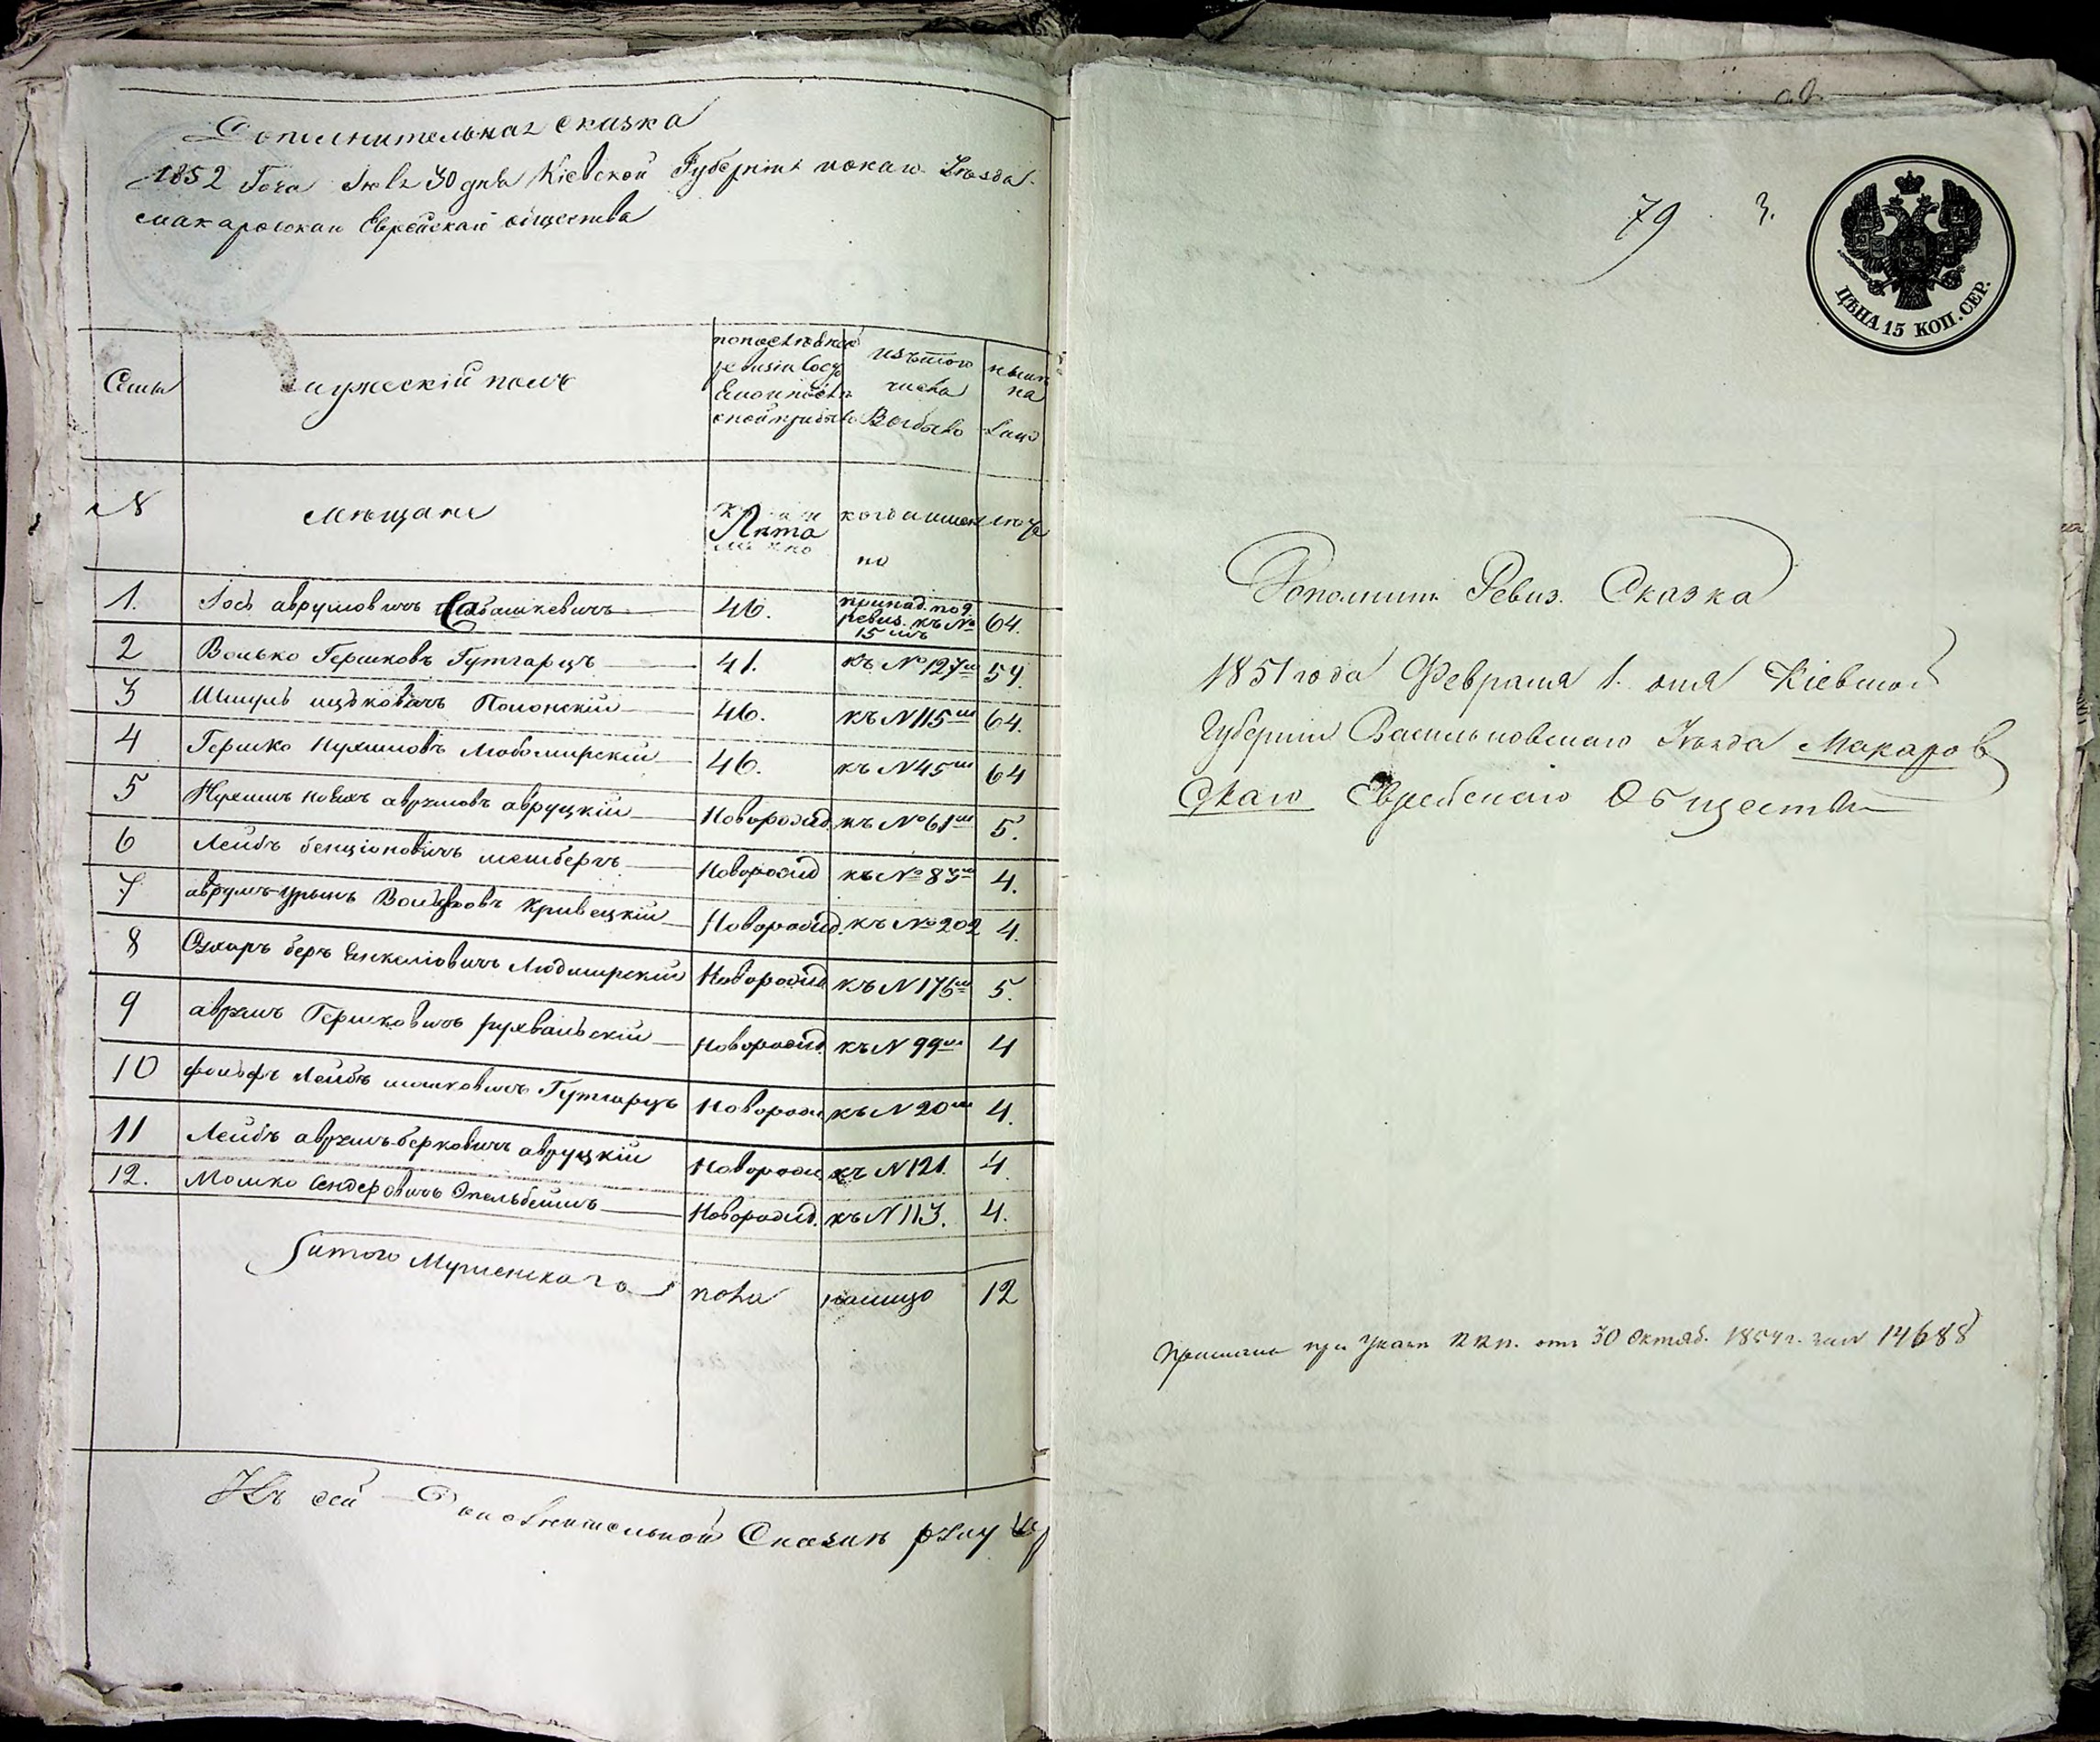 Дополнительная сказка
1852 Года Июля 30 дня Кіевской Губерніи Уѣзда
макаровскаго Еврейскаго общества
Семьи
мужескій полъ
попослѣдней
ревизіи Состо
изътого
числа
Выбыло
нынѣ
на
Лицо
№
мѣщане
Лѣта
когда имен
но
лѣта
1. Іось аврумовичъ Сабашкевичъ 46. принад. по 9. ревиз. къ № 15 64.
2 Волько Гершковъ Гутгарцъ 41. къ № 127 59.
3 Шмуль ицьковичъ Полонскій 46. къ N 115 64.
4 Гершко Нухимовъ Любомирскій 46. къ N 45 64
5 Нухимъ аврумовъ авруцкій Новорожд. къ № 61 5.
6 Лейбъ бенціоновичъ Новорожд къ № 83 4.
7 аврумъ Кривецкій Новорожд. къ № 202 4.
8 беръ Любмирскій Новорожд къ N 176 5.
9 аврумъ Гершковичъ Новорожд. къ N 99 4
10 Лейбъ мошковичъ Гутгарцъ Новорож къ N 20 4.
11 Лейбъ аврумъ-берковичъ авруцкій Новорож. къ N 121. 4
12. Мошко Сендеровичъ Новорожд. къ N 113. 4.
итого Мужескаго пола налицо 12
Къ сей Дополнительной Сказкѣ
79 3.
ЦѢНА 15 КОП. СЕР.
Дополнит Ревиз. Сказка
1851 года Февраля 1. дня Кіевской
Губерніи Васильковскаго Уѣзда Макаров
Скаго Еврейскаго Общества
при Указѣ отъ 30 Октяб. 1854 г. за N 14688